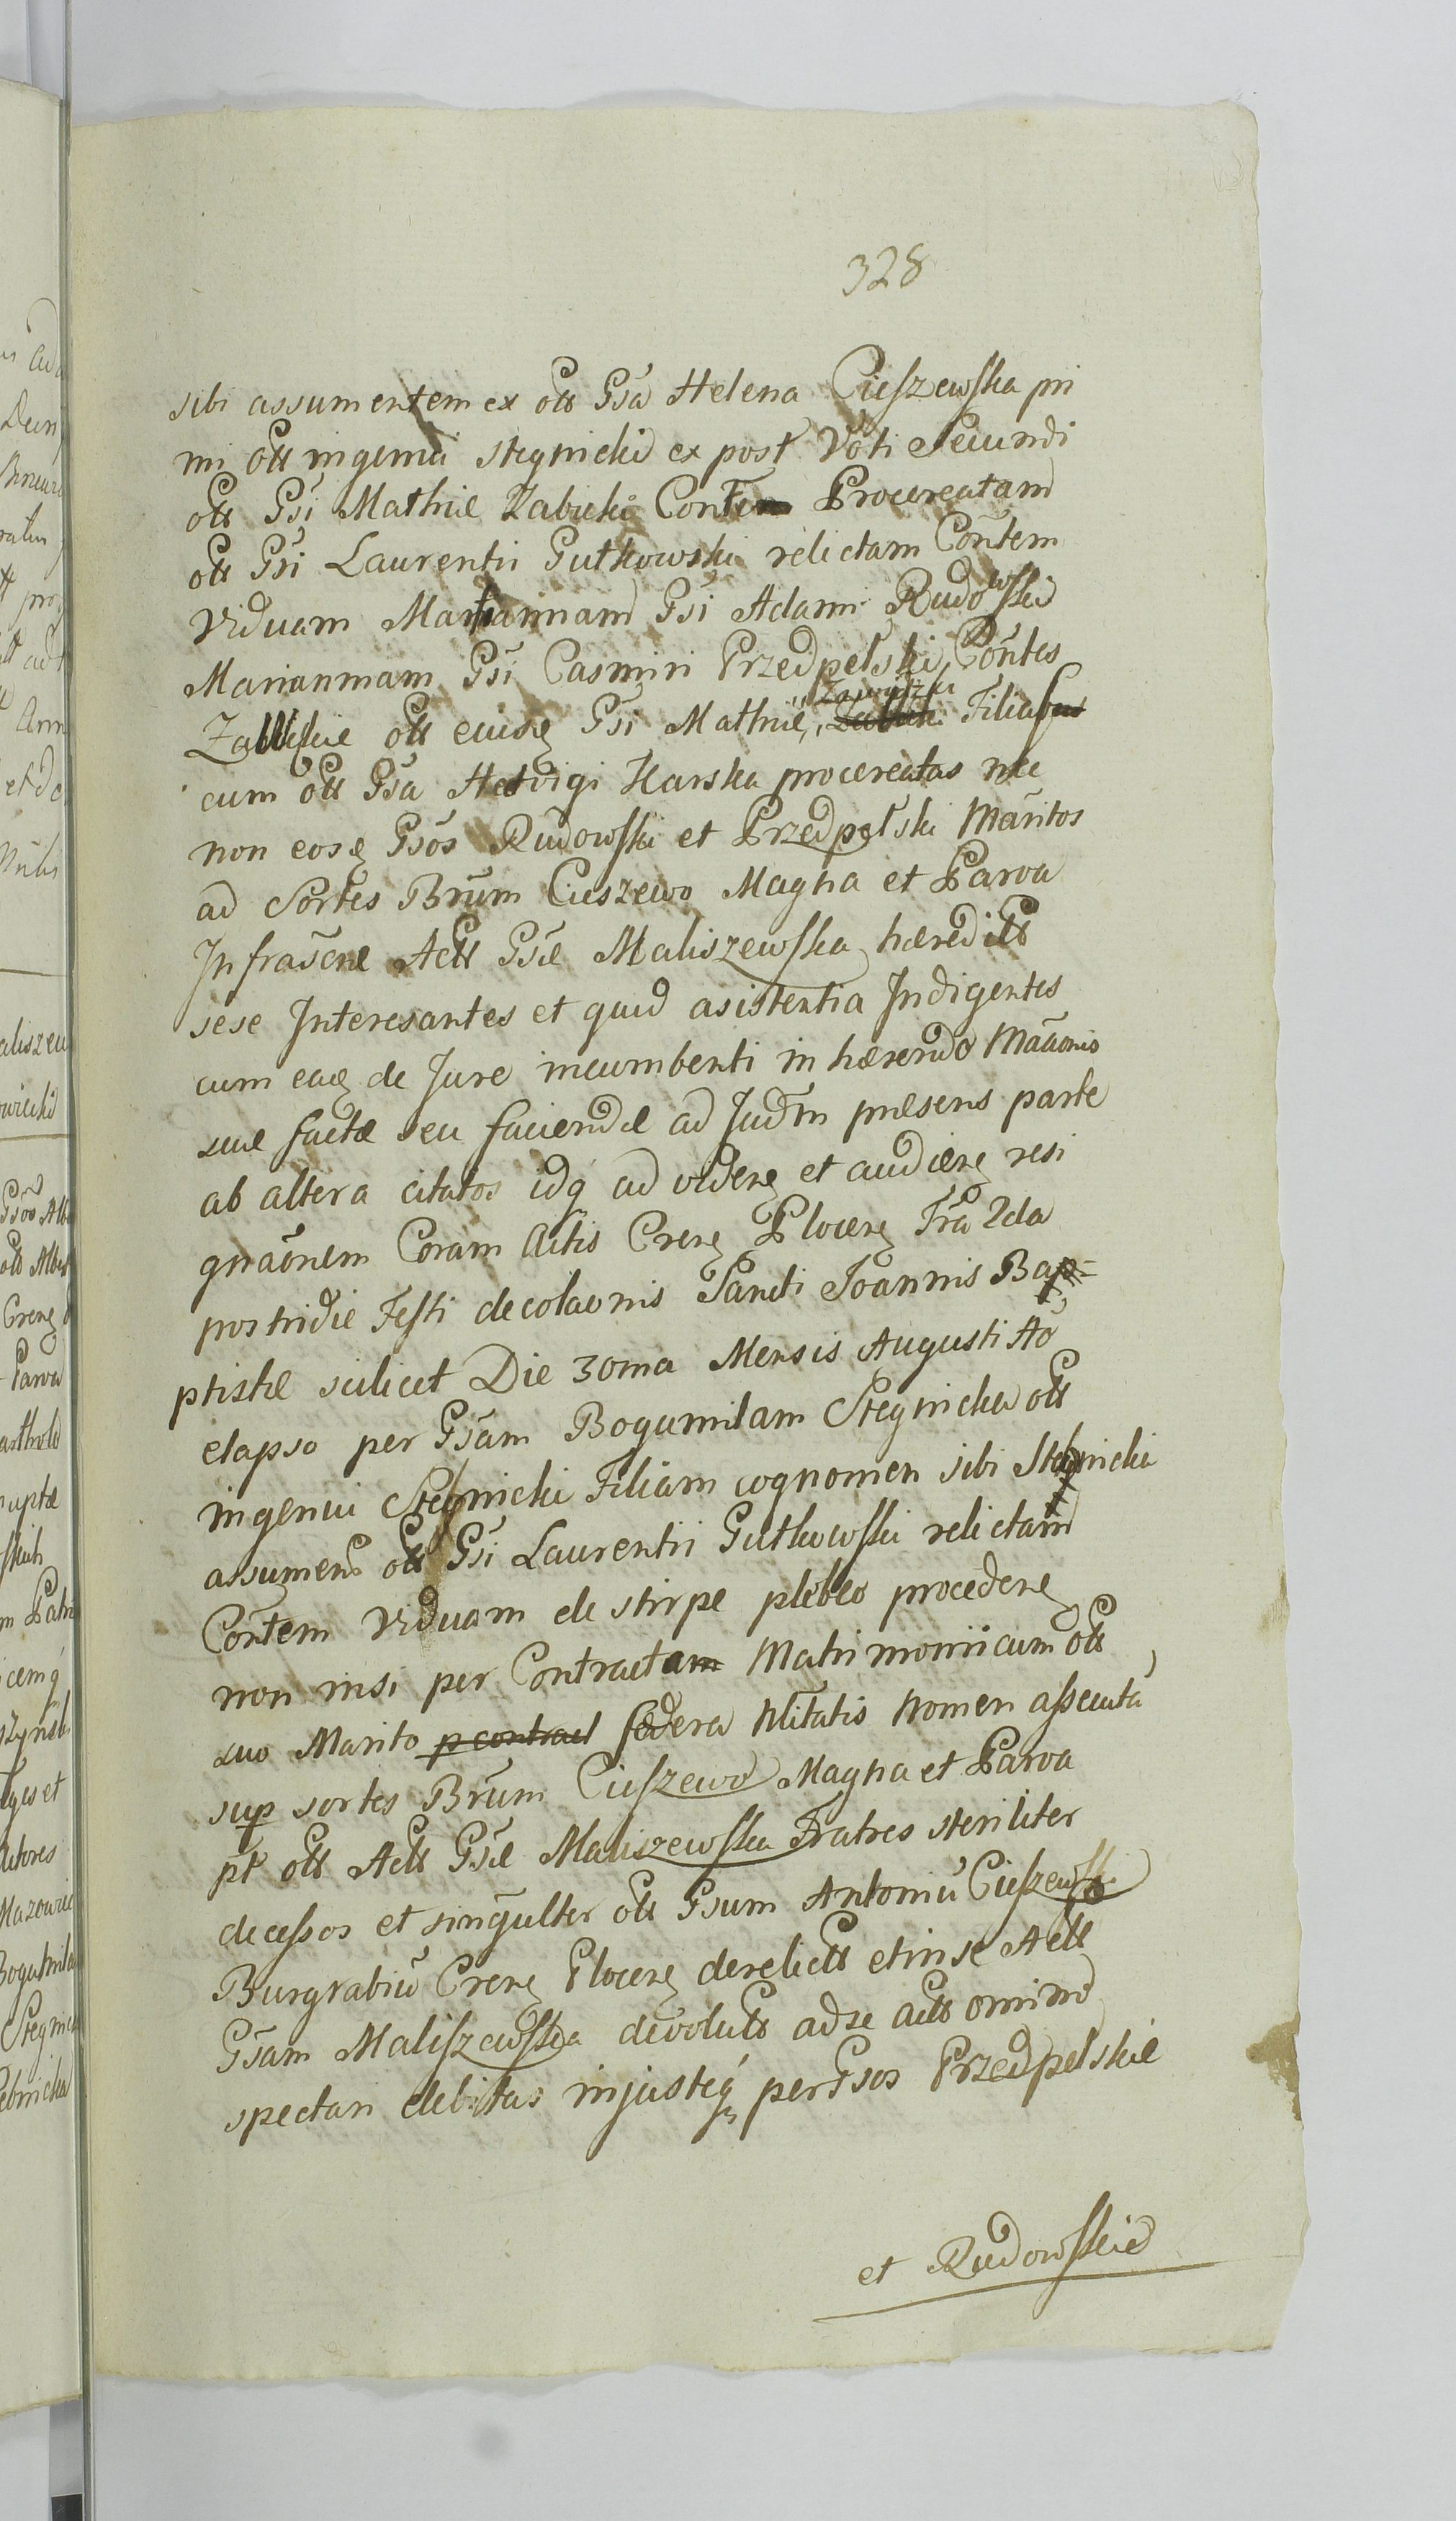 328
sibi assumentem ex olt Gsa Helena Cieszewska pri
mi olt ingenui Stegnicki ex post Voti Secundi
olt Gsi Mathiæ Zabicki Contem Procreatam
olt Gsi Laurentii Gutkowski relictam Contem
Viduam Mariannam Gsi Adami Rudowski
Mariannam Gsi Casmiri Przedpełski Contes
olt eiusq Gsi Mathiæ Zawidzki Filias
cum olt Gsa Hedvigi Karska procreatas nec
non eosq Gsos Rudowski et Przedpełski Maritos
ad Sortes Brum Cieszewo Magna et Parva
Infrascræ Actt Gsæ Maliszewska hæreditt
sese Interesantes et quid asistentia Indigentes
cum eaq de Jure incumbenti in hærendo Maaonis
suæ factæ seu faciendæ ad Judm præsens parte
ab altera citatos idq ad videnq et audienq resi
gnaonem Coram Actis Crenq Plocenq Fra 2da
postridie Festi decolaonis Sancti Joannis Bap=
ptistæ scilicet Die 30ma Mensis Augusti Ao
elapso per Gsam Bogumilam Stegnicka olt
ingenui Stegnicki Filiam cognomen sibi Stegnicki
assumen olt Gsi Laurentii Gutkowski relictam
Contem Viduam de stirpe plebeo procedenq
non nisi per Contractam Matrimonii cum olt
suo Marito p contract fœdera Nlitatis Nomen assecuta
sup sortes Brum Cieszewo Magna et Parva
pt olt Actt Gsæ Maliszewska Fratres steriliter
decessos et singulter olt Gsum Antoniu Cieszewski
Burgrabiu Crenq Plocenq derelictt et in se Actt
Gsam Maliszewska devolutt ad se actt omino
spectari debitas injusteq per Gsos Przedpełskie
et Rudowskie